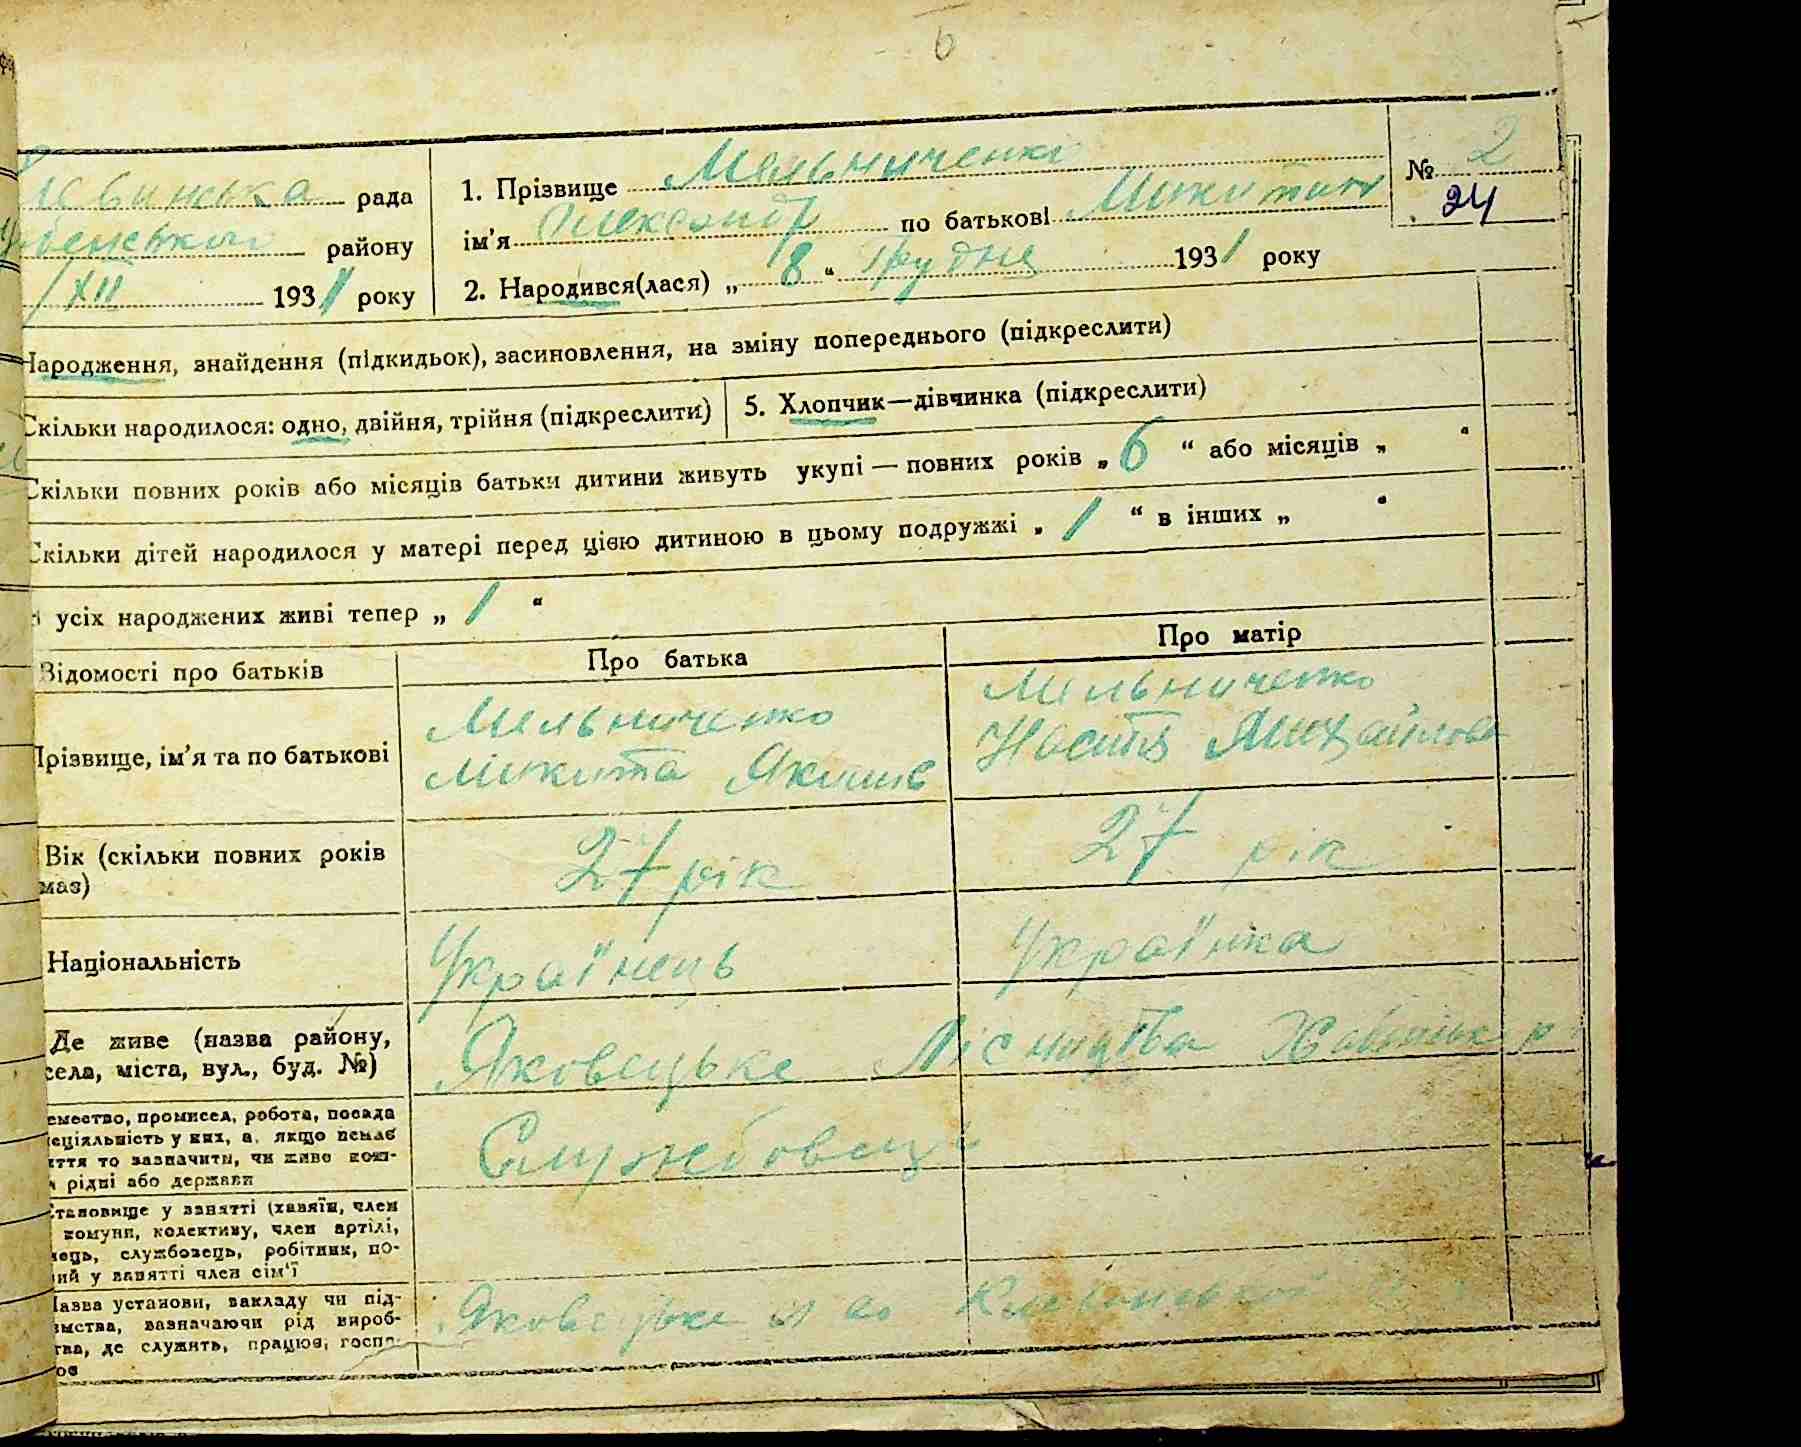 б
рада
району
/XII 1931 року
1. Прізвище Мельниченко
ім'я Олександр по батькові Микитич
2. Народився(лася) „ 8 “ Грудня 1931 року
№ 2
24
Народження, знайдення (підкидьок), засиновлення, на зміну попереднього (підкреслити)
Скільки народилося: одно, двійня, трійня (підкреслити)
5. Хлопчик—дівчинка (підкреслити)
Скільки повних років або місяців батьки дитини живуть укупі — повних років „ 6 “ або місяців „ “
Скільки дітей народилося у матері перед цією дитиною в цьому подружжі „ 1 “ в інших „ “
усіх народжених живі тепер „ 1 “
Відомості про батьків
Про батька
Про матір
Прізвище, ім'я та по батькові
Мельниченко
Микита Якимів
Мельниченко
Настя Михайлова
Вік (скільки повних років
маз)
27 рік
27 рік
Національність
Українець
Українка
Де живе (назва району,
села, міста, вул., буд. №)
Яковецьке Лісництво
емество, промисел, робота, посада
еціяльність у них, а, якщо немає
ття то зазначити, чи живе кош-
рідні або держави
Службовець
Становище у занятті (хазяїн, член
комуни, колективу, член артілі,
нець, службовець, робітник, по-
ий у занятті член сім'ї
Назва установи, закладу чи під-
мства, зазначаючи рід вироб-
тва, де служить, працює, госпо-
ює
Яковецьке